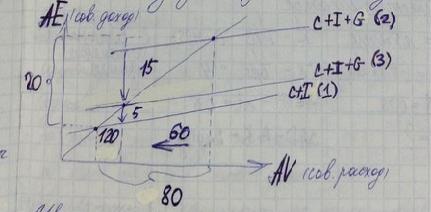 AE (сов. доход)
C+I+G (2)
15
C+I+G (3)
20
5
C+I (1)
120
60
AV (сов. расход)
80